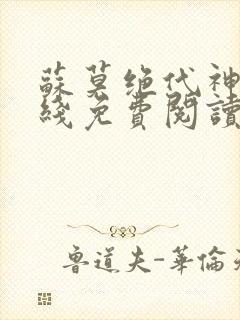 蘇莫絕代神
綫免費閱讀
魯道夫-華倫